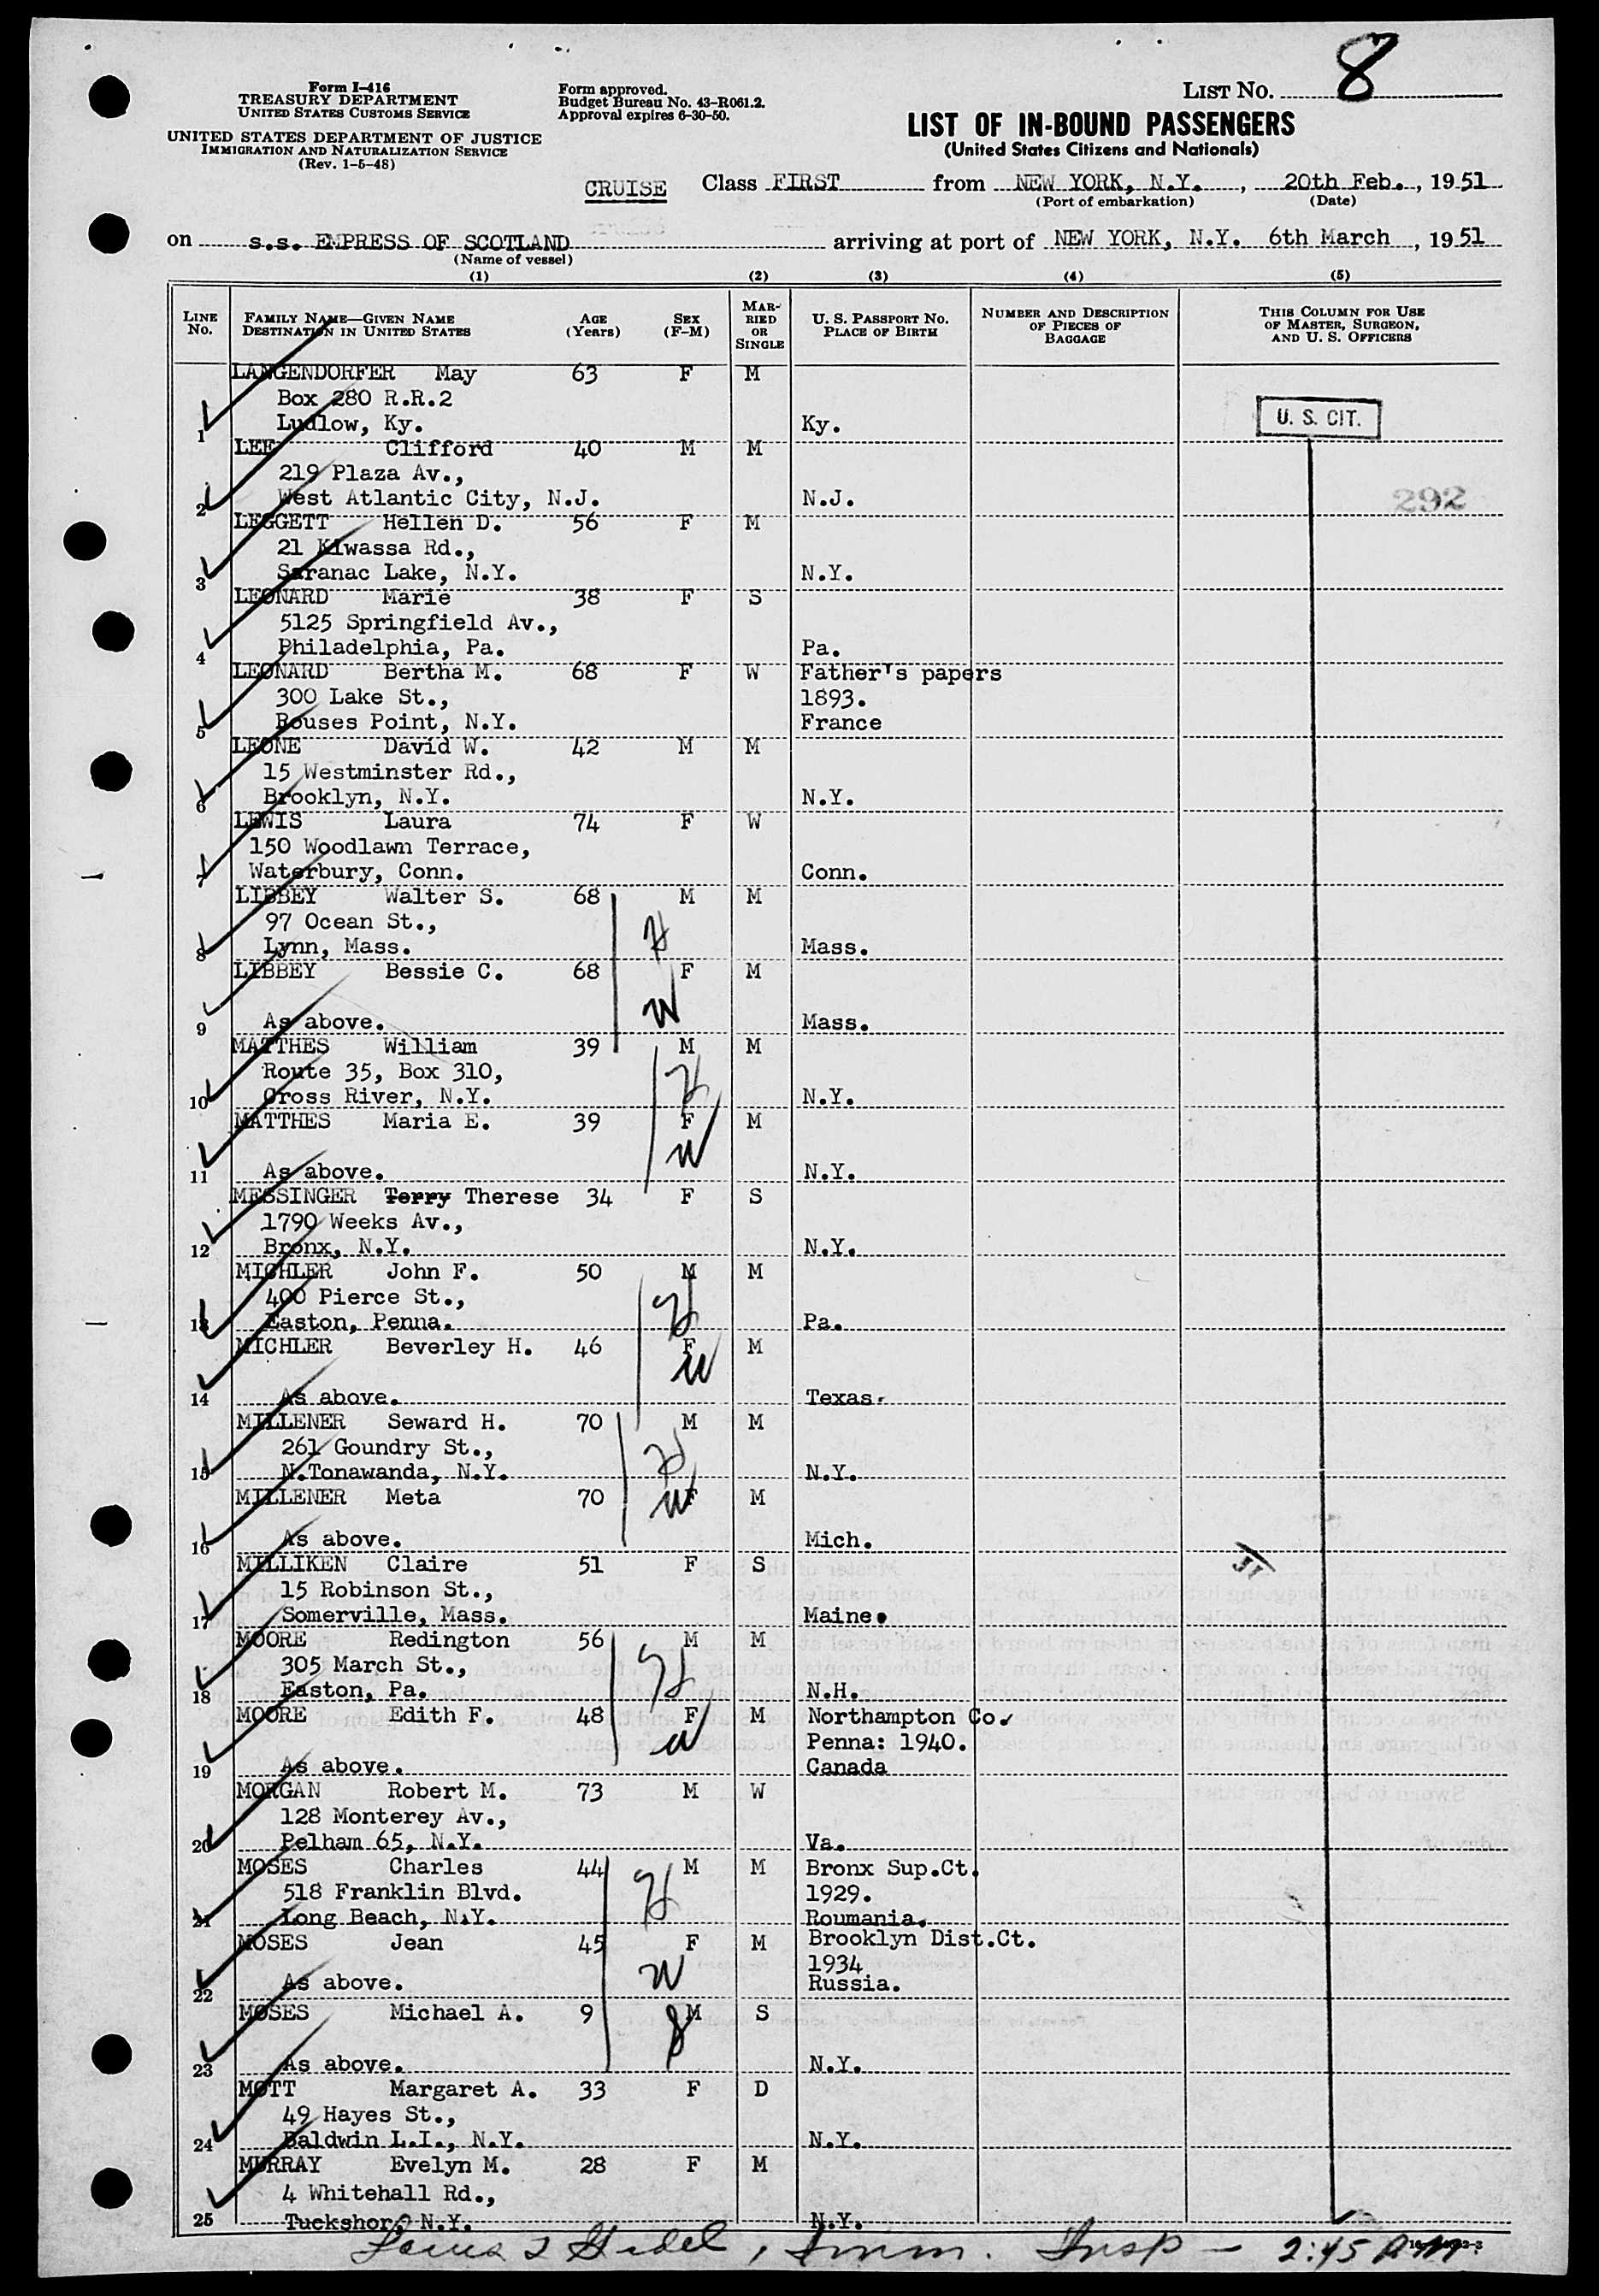 Form I-416
TREASURY DEPARTMENT
UNITED STATES CUSTOMS SERVICE
UNITED STATES DEPARTMENT OF JUSTICE
IMMIGRATION AND NATURALIZATION SERVICE
(Rev. 1-5-48)
Form approved.
Budget Bureau No. 43-R061.2.
Approval expires 6-30-50.
LIST NO. 8
LIST OF IN-BOUND PASSENGERS
(United States Citizens and Nationals)
CRUISE Class FIRST from NEW YORK, N.Y., 20th Feb., 1951
(Port of embarkation) (Date)
on s.s. EMPRESS OF SCOTLAND arriving at port of NEW YORK, N.Y. 6th March, 1951
(Name of vessel)
(1) (2) (3) (4) (5)
LINE NO. FAMILY NAME—GIVEN NAME DESTINATION IN UNITED STATES AGE (Years) SEX (F-M) MARRIED OR SINGLE U. S. PASSPORT NO. PLACE OF BIRTH NUMBER AND DESCRIPTION OF PIECES OF BAGGAGE THIS COLUMN FOR USE OF MASTER, SURGEON, AND U. S. OFFICERS
LANGENDORFER May 63 F M
Box 280 R.R.2
1 Ludlow, Ky. Ky. U. S. CIT.
LEE Clifford 40 M M
219 Plaza Av.,
2 West Atlantic City, N.J. N.J. 292
LEGGETT Hellen D. 56 F M
21 Kiwassa Rd.,
3 Saranac Lake, N.Y. N.Y.
LEONARD Marie 38 F S
5125 Springfield Av.,
4 Philadelphia, Pa. Pa.
LEONARD Bertha M. 68 F W Father's papers
300 Lake St., 1893.
5 Rouses Point, N.Y. France
LEONE David W. 42 M M
15 Westminster Rd.,
6 Brooklyn, N.Y. N.Y.
LEWIS Laura 74 F W
150 Woodlawn Terrace,
7 Waterbury, Conn. Conn.
LIBBEY Walter S. 68 M M
97 Ocean St., H
8 Lynn, Mass. Mass.
LIBBEY Bessie C. 68 F M
W
9 As above. Mass.
MATTHES William 39 M M
Route 35, Box 310, H
10 Cross River, N.Y. N.Y.
MATTHES Maria E. 39 F M
W
11 As above. N.Y.
MESSINGER Terry Therese 34 F S
1790 Weeks Av.,
12 Bronx, N.Y. N.Y.
MICHLER John F. 50 M M
400 Pierce St., H
13 Easton, Penna. Pa.
MICHLER Beverley H. 46 F M
W
14 As above. Texas.
MILLENER Seward H. 70 M M
261 Goundry St., H
15 N.Tonawanda, N.Y. N.Y.
MILLENER Meta 70 F M
W
16 As above. Mich.
MILLIKEN Claire 51 F S
15 Robinson St.,
17 Somerville, Mass. Maine.
MOORE Redington 56 M M
305 March St., H
18 Easton, Pa. N.H.
MOORE Edith F. 48 F M Northampton Co.
W Penna: 1940.
19 As above. Canada
MORGAN Robert M. 73 M W
128 Monterey Av.,
20 Pelham 65, N.Y. Va.
MOSES Charles 44 M M Bronx Sup.Ct.
518 Franklin Blvd. H 1929.
21 Long Beach, N.Y. Roumania.
MOSES Jean 45 F M Brooklyn Dist.Ct.
W 1934
22 As above. Russia.
MOSES Michael A. 9 M S
S
23 As above. N.Y.
MOTT Margaret A. 33 F D
49 Hayes St.,
24 Baldwin L.I., N.Y. N.Y.
MURRAY Evelyn M. 28 F M
4 Whitehall Rd.,
25 Tuckshor, N.Y. N.Y.
Imm. Insp — 2:45 P.M.